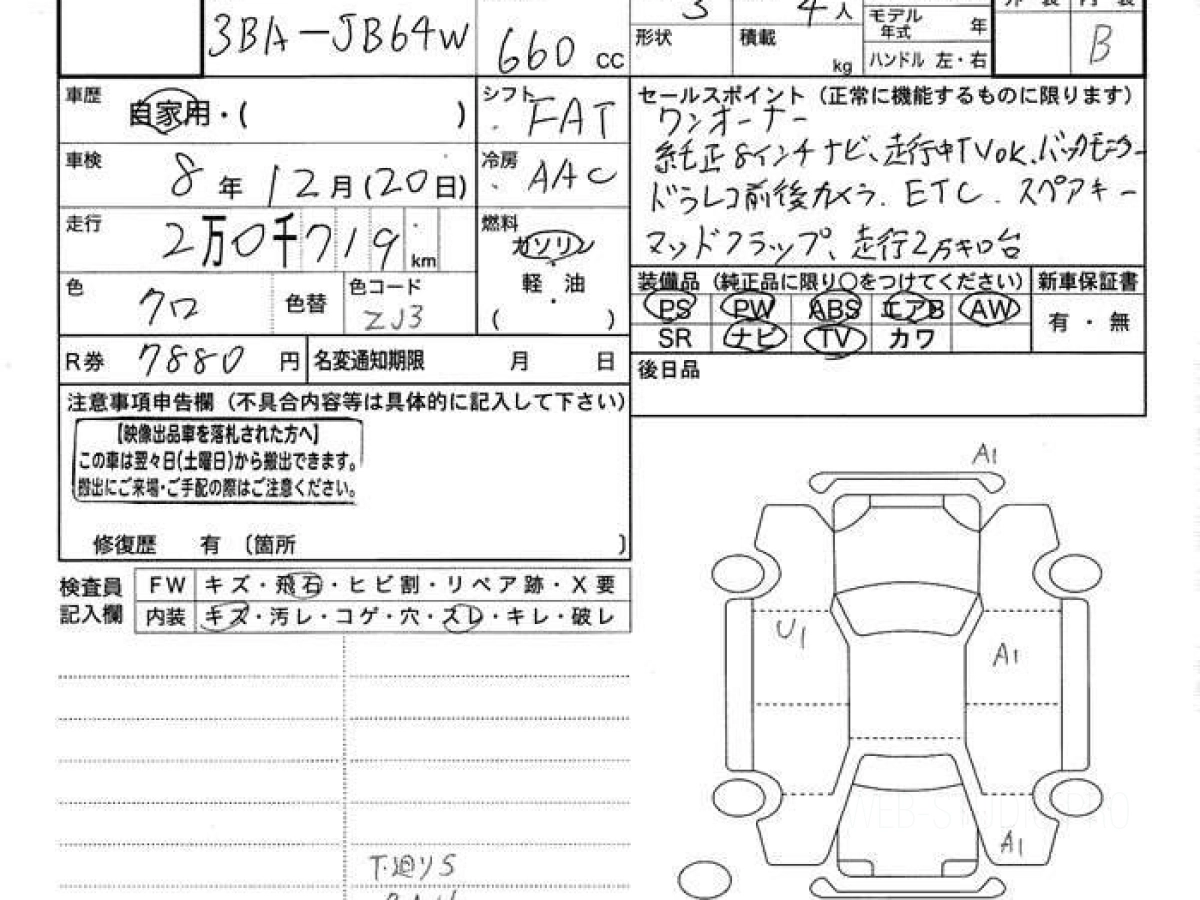 3BA-JB64W
660 cc
3
4人
形状
積載
kg
モデル年式
年
ハンドル 左・右
B
車歴
自家用・( )
シフト
FAT
セールスポイント（正常に機能するものに限ります）
ワンオーナー
純正8インチナビ、走行中TVOK、バックモニター
ドラレコ前後カメラ. ETC. スペアキー
マッドフラップ、走行2万キロ台
車検
8年12月(20日)
冷房
AAC
走行
2万0千719km
燃料
ガソリン
軽・油
( )
色
クロ
色替
色コード
ZJ3
装備品（純正品に限り○をつけてください）
新車保証書
PS PW ABS エアB AW
有・無
SR ナビ TV カワ
R券 7880円
名変通知期限 月 日
後日品
注意事項申告欄（不具合内容等は具体的に記入して下さい）
【映像出品車を落札された方へ】
この車は翌々日(土曜日)から搬出できます。
搬出にご来場・ご手配の際はご注意ください。
修復歴 有〔箇所 〕
検査員記入欄
FW キズ・飛石・ヒビ割・リペア跡・X要
内装 キズ・汚レ・コゲ・穴・スレ・キレ・破レ
A1
U1
A1
A1
T.廻りS